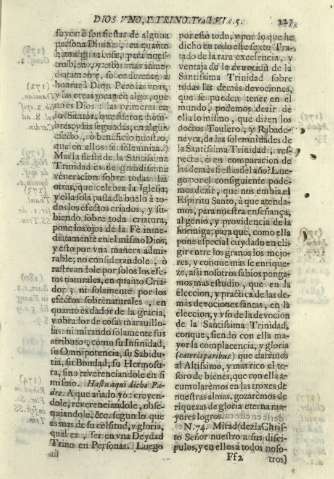 DIOS VNO, Y TRINO. Tra. VI. §. 227
su ser ò son fiestas de alguna
persona Diuina, en quanto
mas, y
à honrar à Dios. Pero las vnas,
y las otras miran algo, que
ues Dios à las criaturas en
ò beneficio nuestro,
que en ellos se solemniza.
Mas la fiesta de la Santissima
Trinidad es de grandissima
veneracion sobre todas las
otras, que celebra la Iglesia;
y ella sola passa de buelo à to-
dos los efectos criados, y su-
biendo sobre toda criatura,
pone los ojos de la Fè imme-
diatamente en el mismo Dios,
y esto por vna manera admi-
rable; no considerandole, ò
rastreandole por solos los efe-
tos naturales, en quanto Cria-
dor, ni solamente por los
efectos sobrenaturales, en
quanto es dador de la gracia,
y obrador de cosas marauillo-
sas: ni mirando solamente sus
atributos, como su infinidad,
su Omnipotencia, su Sabidu-
ria, su Bondad, su Hermosu-
ra, sino reuerenciandole en si
mismo. Hasta aqui dicho Pa-
dre. A que añado yo: creyen-
dole, reuerenciandole, obse-
quiandole, &c. segun lo que
es mas de su celsitud, y gloria,
qual es, ser en vna Deydad
Trino en Personas. Luego
por esto todo, y por lo que he
dicho en todo este sexto Tra-
tado de la rara excelencia, y
ventaja de la deuocion de la
Santissima Trinidad sobre
todas las demàs deuociones,
que se pueden tener en el
mundo, podemos dezir de
ella lo mismo, que dizen los
doctos Taulero, y Ribade-
neyra, de las solemnidades de
la Santissima Trinidad, res-
pecto, ò en comparacion de
las demàs fiestas del año. Lue-
go por el consiguiente pode-
mos dezir, que nos embia el
Espiritu Santo, à que atenda-
mos, para nuestra enseñança,
al genio, y prouidencia de la
hormiga; para que, como ella
pone especial cuydado en eli-
gir entre los granos los mejo-
res, y con que mas se enrique-
ze, assi nosotros subios ponga-
mos mas estudio, que en la
eleccion, y practica de las de-
màs deuociones santas, en la
eleccion, y vso de la deuocion
de la Santissima Trinidad,
conque, siendo con ella ma-
yor la complacencia, y gloria
(cæteris paribus) que daremos
al Altissimo, y mas rico el te-
soro de bienes, que con ella a-
cumularèmos en las troxes de
nuestras almas, gozarèmos de
riquezas de gloria eterna ma-
yores logros.
N. 74. Mirad (dezia Chris-
to Señor nuestro a sus disci-
pulos, y en ellos à todos noso-
Ff2 tros)